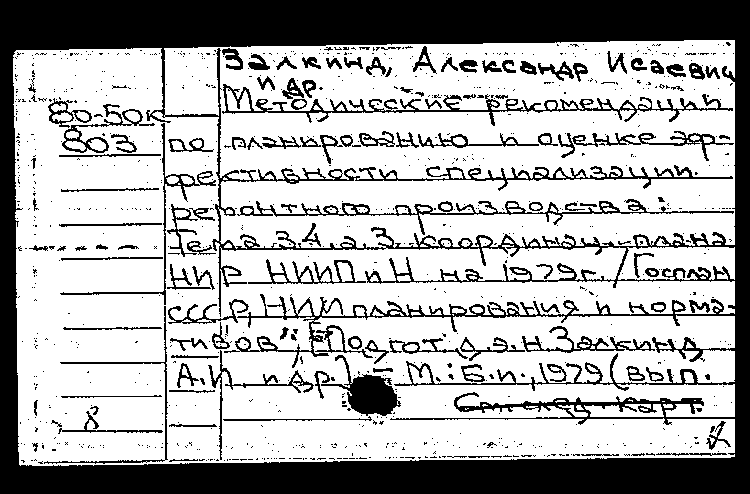 Залкинд, Александр Исаевич
и др.
80-50к
803
Методические рекомендации
по планированию и оценке эф-
фективности специализации
ремонтного производства:
Тема 3.4.а.3. координац. плана
НИР НИИПиН на 1979г. / Госплан
СССР, НИИ планирования и норма-
тивов"; [Подгот. д.э.н. Залкинд
А.И. и др.] - М.: Б.и., 1979 (вып.
См. след. карт.
8